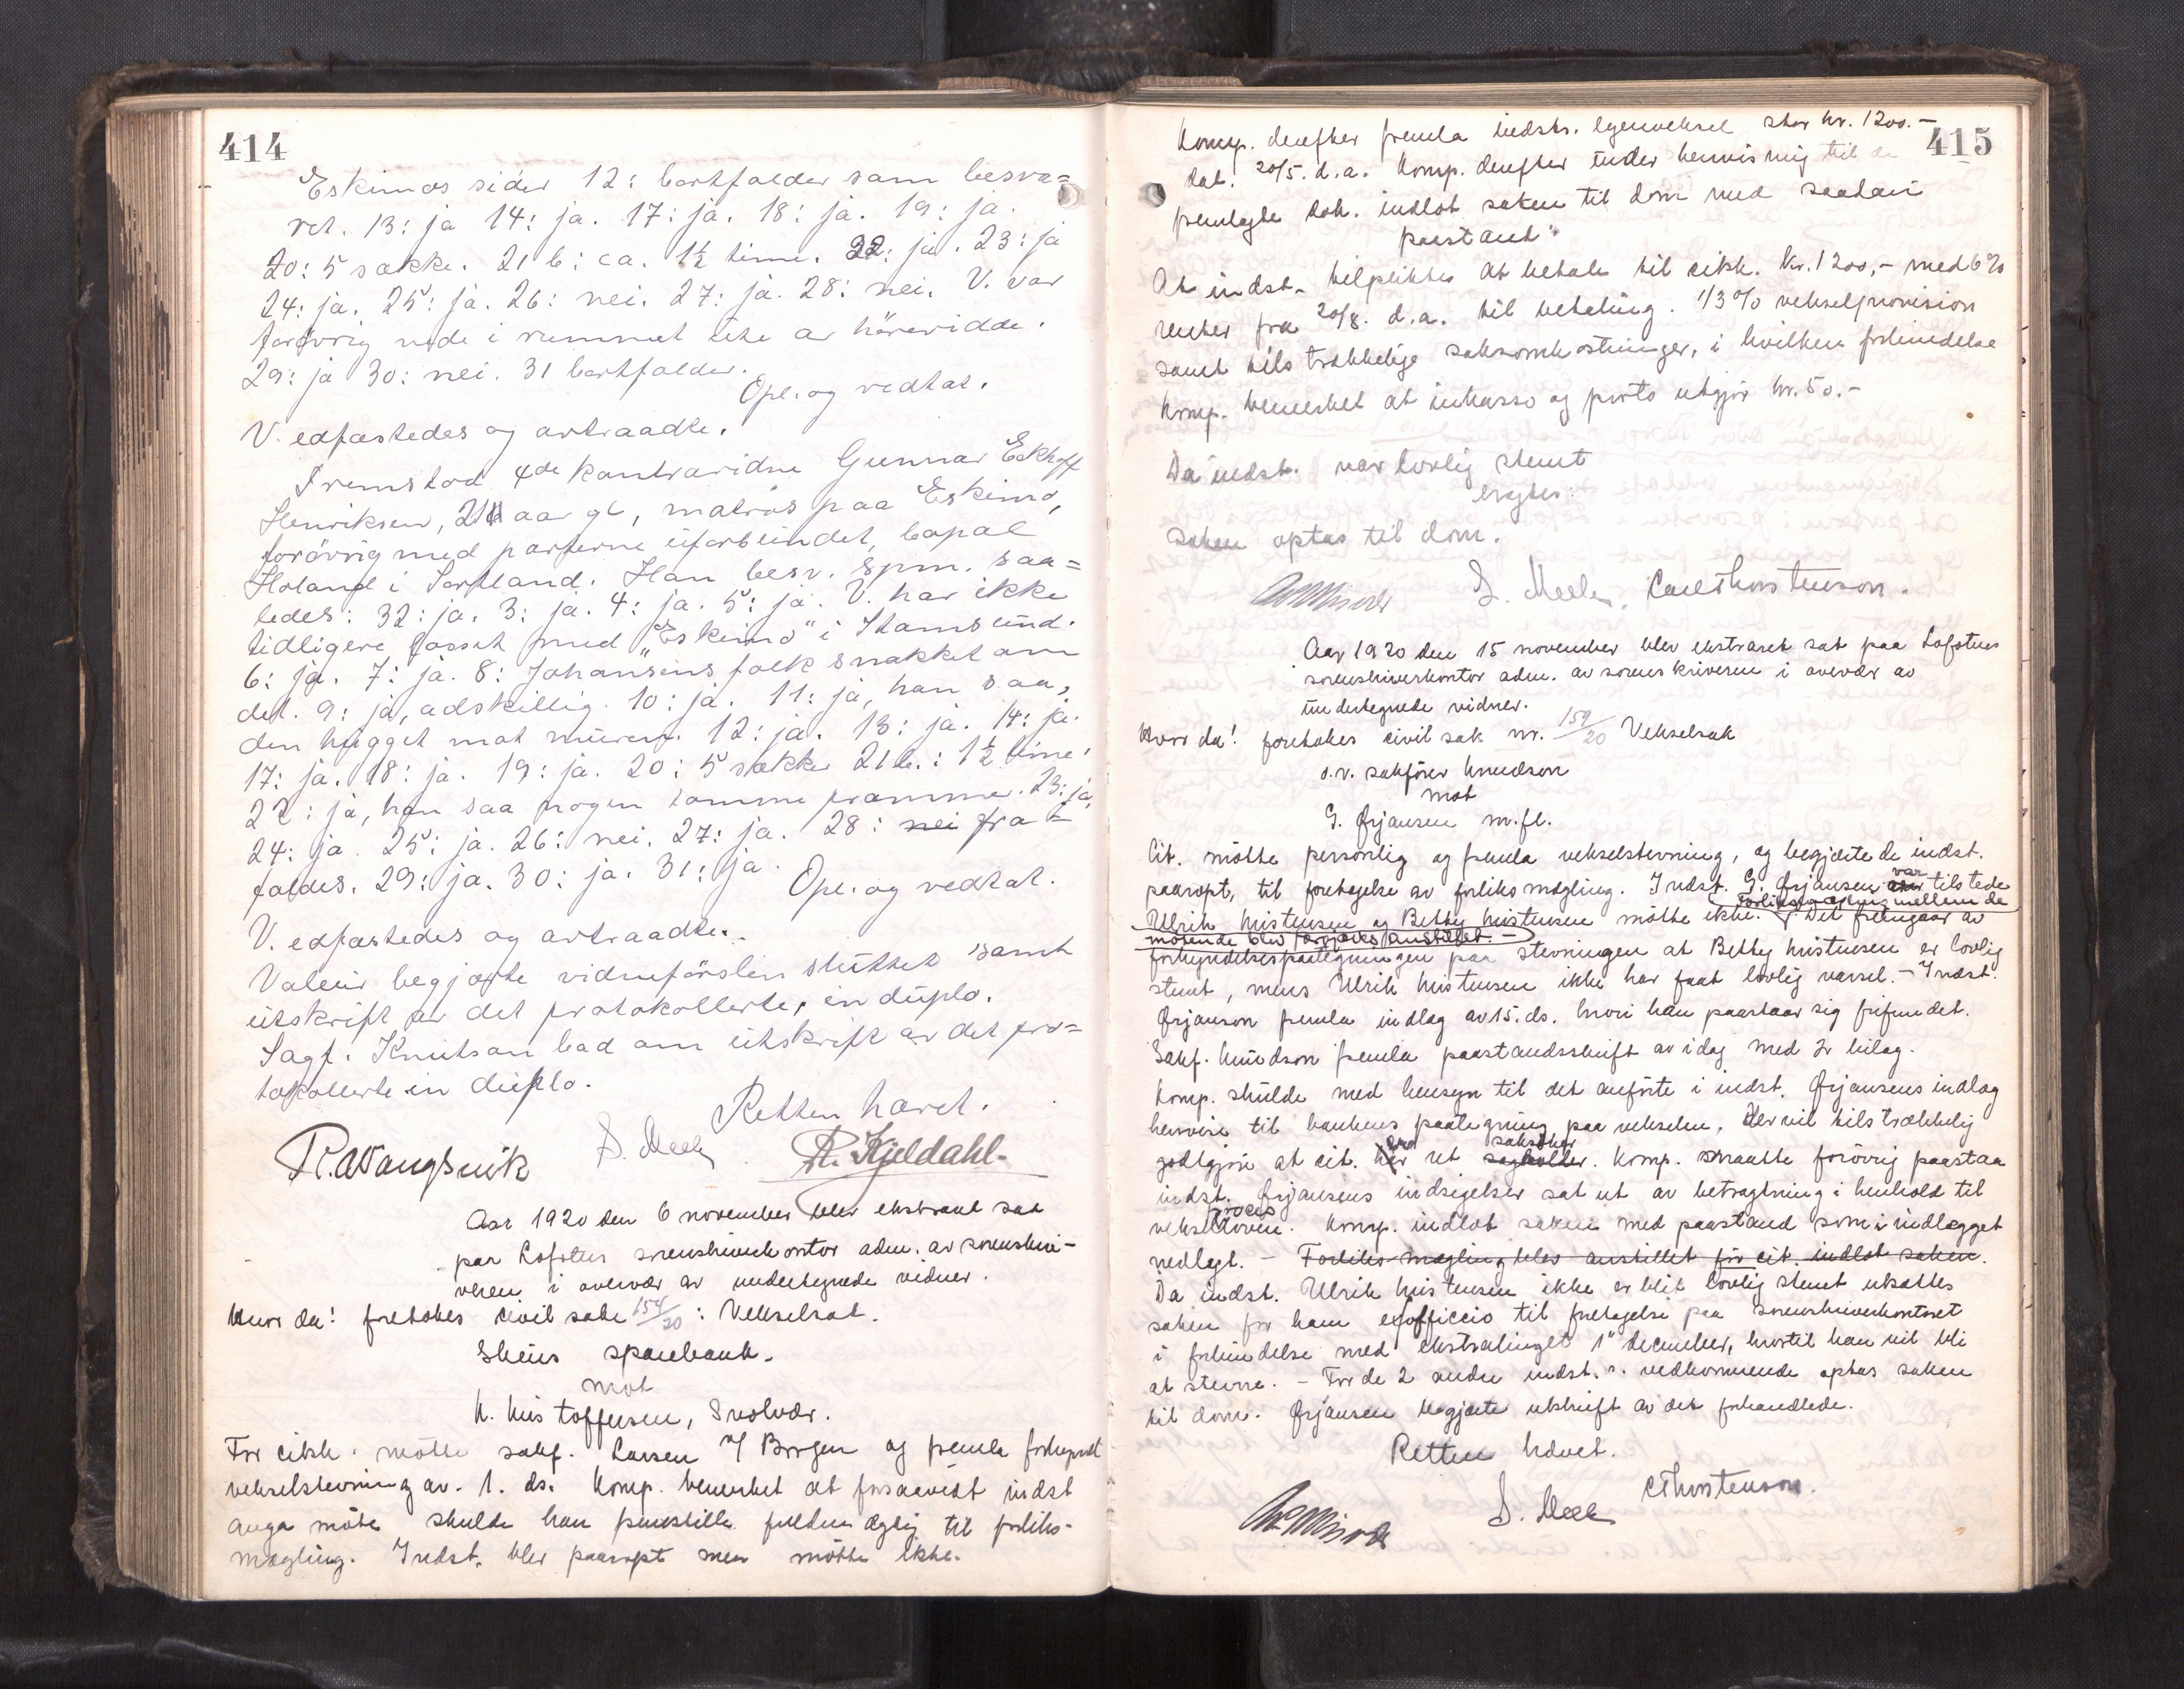 414
Eskimos sider 12: bortfalder som besva=
ret. 13: ja 14: ja. 17: ja. 18: ja. 19: ja.
20: 5 sække. 21 b: ca. 1½ time. 22: ja. 23: ja
24: ja. 25: ja. 26: nei. 27: ja. 28: nei. V. var
forøvrig nede i rummet ute av hörevidde.
29: ja 30: nei. 31 bortfalder.
Opl. og vedtat.
V. edfæstedes og avtraadte.
Fremstod 4de kontravidne Gunnar Ekhoff
Henriksen, aar gl, matros paa Eskimo,
forövrig med parterne uforbundet, bopæl
Holand i Sortland. Han besv. spm. saa=
ledes: 32: ja. 3: ja. 4: ja. 5: ja. V. har ikke
tidligere losset med "Eskimo" i Stamsund.
6: ja. 7: ja. 8: Johansens folk snakket om
det. 9: ja, adskillig. 10: ja. 11: ja, han saa,
den hugget mot muren. 12: ja. 13: ja. 14: ja.
17: ja. 18: ja. 19: ja. 20: 5 sække 21 b.: 1½ time.
22: ja, han saa nogen tomme pramme. 23: ja,
24: ja. 25: ja. 26: nei. 27: ja. 28: nei fra=
faldes. 29: ja. 30: ja. 31: ja.
Opl. og vedtat.
V. edfæstedes og avtraadte.
Valeur begjærte vidneförslen sluttet samt
utskrift av det protokollerte, in duplo.
Sagf. Knutson bad om utskrift av det pro=
tokollerte in duplo.
Retten hævet.
S. Meel R. Kjeldahl
Aar 1920 den 6 november blev ekstraret sat
paa Lofotens sorenskriverkontor adm. av sorenskri-
veren i overvær av undertegnede vidner.
Hvor da! foretokes civil sak 154/20: Vekselsak.
Skeins sparebank
mot
K. Kristoffersen, Svolvær.
For citk. mötte sakf. Larsen v/ Borgen og fremla forkyndt
vekselstevning av 1. ds. Komp. bemerket at forsaavidt indst
maatte möte skulde han fremstille fuldmægtig til forliks-
mægling. Indst. blev paaropt men mötte ikke.
415
Komp. derefter fremla indstr. egenveksel stor kr. 1200.-
dat. 20/5. d.a. Komp. derefter under henvisning til de
fremlagte dok. indlot saken til dom med saadan
paastand:
At indst. tilpliktes at betale til citk. kr. 1200,- med 6%
renter fra 20/8. d.a. til betaling. 1/3% vekselprovision
samt tilstrækkelige saksomkostninger, i hvilken forbindelse
komp. bemerket at inkasso og porto utgjör kr. 50.-
Da indst. var lovlig stemt
avsagtes:
saken optas til dom.
S. Meel. Carl Thorstenson.
Aar 1920 den 15 november blev ekstraret sat paa Lofotens
sorenskriverkontor adm. av sorenskriveren i overvær av
undertegnede vidner.
Hvor da! foretokes civil sak nr. 159/20 Vekselsak
o.r. sakförer Knudson
mot
G. Ørjansen m.fl.
Cit. mötte personlig og fremla vekselstevning, og begjærte de indst.
paaropt, til foretagelse av forliksmægling. Indst. G. Ørjansen var tilstede
Ulrik Kristensen og Betty Kristensen mötte ikke. Forliksmægling mellem de
mötende blev forgjæves anstillet. - Det fremgaar av
forkyndelsespaategningen paa stevningen at Betty Kristensen er lovlig
stemt, mens Ulrik Kristensen ikke har faat lovlig varsel. - Indst.
Ørjansen fremla indlæg av 15. ds. hvori han paastaar sig frifundet.
Sakf. Knudson fremla paastandsskrift av idag med 2 bilag.
Komp. skulde med hensyn til det anförte i indst. Ørjansens indlæg
henvise til bankens paategning paa vekselen, der vil tilstrækkelig
godtgjöre at cit. er ret saksöker. Komp. maatte forövrig paastaa
indst. Ørjansens indsigelser sat ut av betragtning i henhold til
vekselprocesloven. Komp. indlot saken med paastand som i indlægget
nedlagt. - Forliksmægling blev anstillet för cit. indlot saken.
Da indst. Ulrik Kristensen ikke er blit lovlig stemt utsættes
saken for ham exofficcio til foretagelse paa sorenskriverkontoret
i forbindelse med ekstratinget 1" december, hvortil han vil bli
at stevne. - For de 2 andre indst.s. vedkommende optas saken
til dom. Ørjansen begjærte utskrift av det forhandlede.
Retten hævet.
S. Meel C Thorstenson.